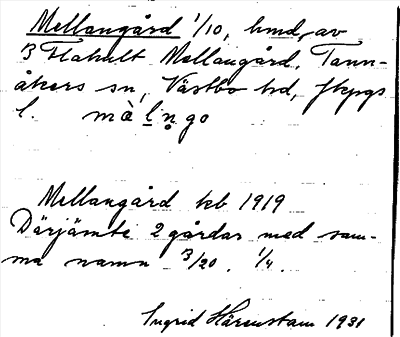 Mellangård 1/10, hmd, av
3 Flahult Mellangård, Tann-
åkers sn, Västbo hd, Jkpgs
l. màl̠n̥go
Mellangård kb 1919
Därjämte 2 gårdar med sam-
ma namn 3/20. 1/4.
Ingrid Härenstam 1931